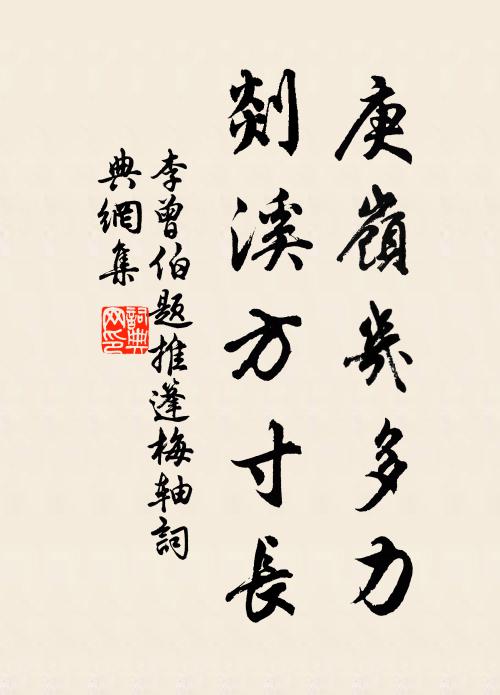 庾嶺幾多力
剡溪方寸長
李曾伯題推蓬梅軸詞
典網集
詞典网印